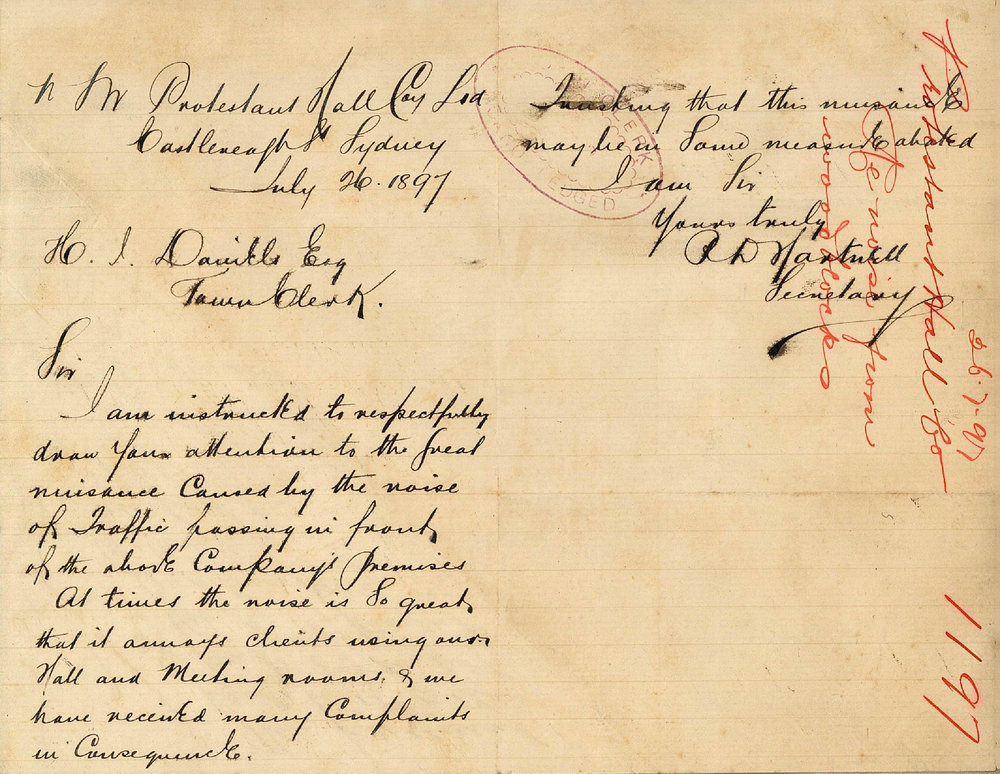 N S W Protestant Hall Coy Ltd
Castlereagh St Sydney
July 26. 1897
H. J. Daniels Esq
Town Clerk.
Sir
I am instructed to respectfully
draw your attention to the great
nuisance Caused by the noise
of Traffic passing in front
of the above Company's Premises
At times the noise is So great,
that it annoys clients using our
Hall and Meeting rooms, & we
have received many Complaints
in Consequence.
Trusting that this nuisance
may be in Some measure abated
I am Sir
Yours truly
Hartnell
Secretary
CLERK
LEDGED
Protestant Hall Co
26.7.97
Re noise from
wood blocks
1197